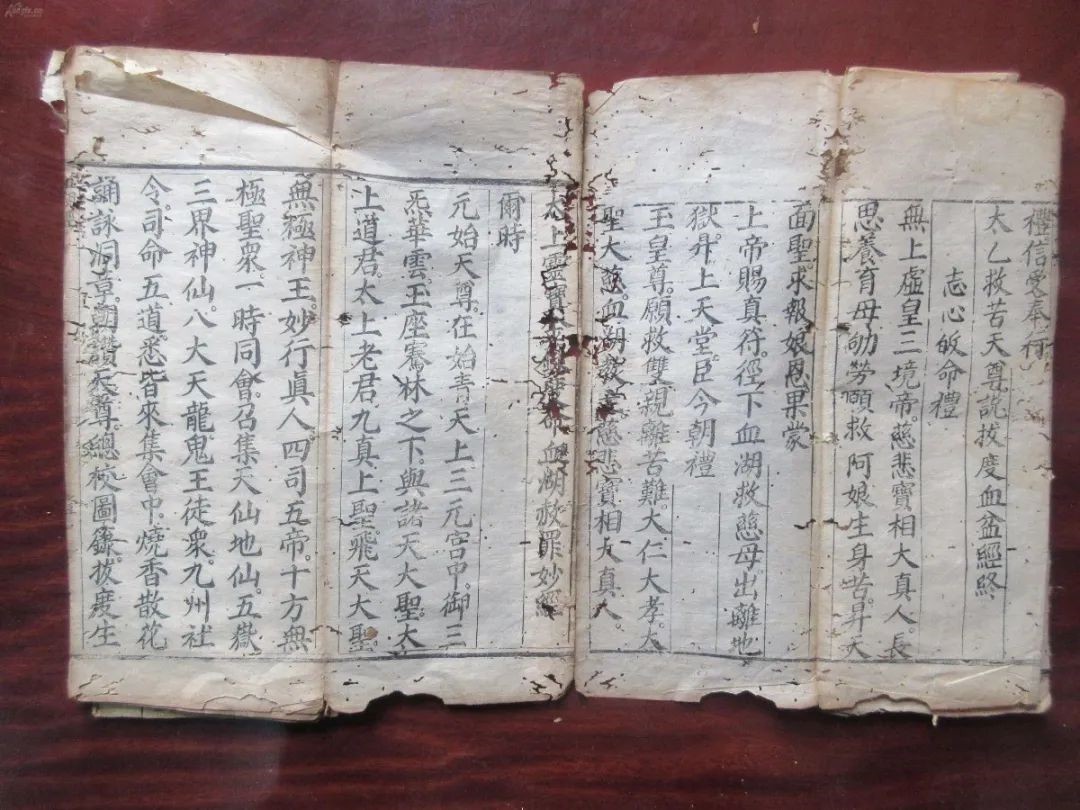 禮信受奉行
太乙救苦天尊說拔度血盆經終
志心皈命禮
無上虛皇三境帝。慈悲寶相大真人。長
思養育母劬勞願救阿娘生身苦。昇天
面聖求報娘恩果蒙
上帝賜真符。徑下血湖救慈母。出離地
獄。升上天堂臣今朝禮
玉皇尊。願救雙親離苦難。大仁大孝。大
聖大慈。血湖教主慈悲寶相大真人。
太上靈寶血湖赦罪妙經
爾時
元始天尊。在始青天上三元宮中。御三
炁華雲。玉座騫林之下與諸天大聖。太
上道君。太上老君。九真上聖。飛天大聖
無極神王。妙行真人。四司五帝。十方無
極聖衆。一時同會。召集天仙地仙。五嶽
三界神仙。八大天龍。鬼王徒衆。九州社
令。司命五道。悉皆來集會中燒香散花
誦詠洞章。讚天尊。總校圖籙。拔度生